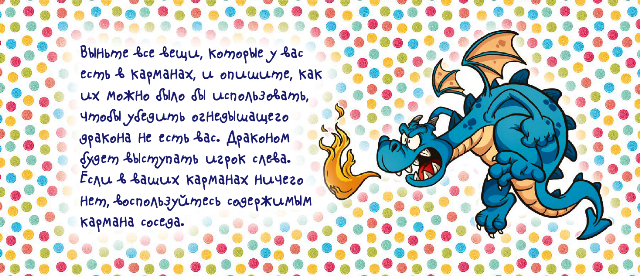 Выньте все вещи, которые у вас
есть в карманах, и опишите, как
их можно было бы использовать,
чтобы убедить огнедышащего
дракона не есть вас. Драконом
будет выступать игрок слева.
Если в ваших карманах ничего
нет, воспользуйтесь содержимым
кармана соседа.